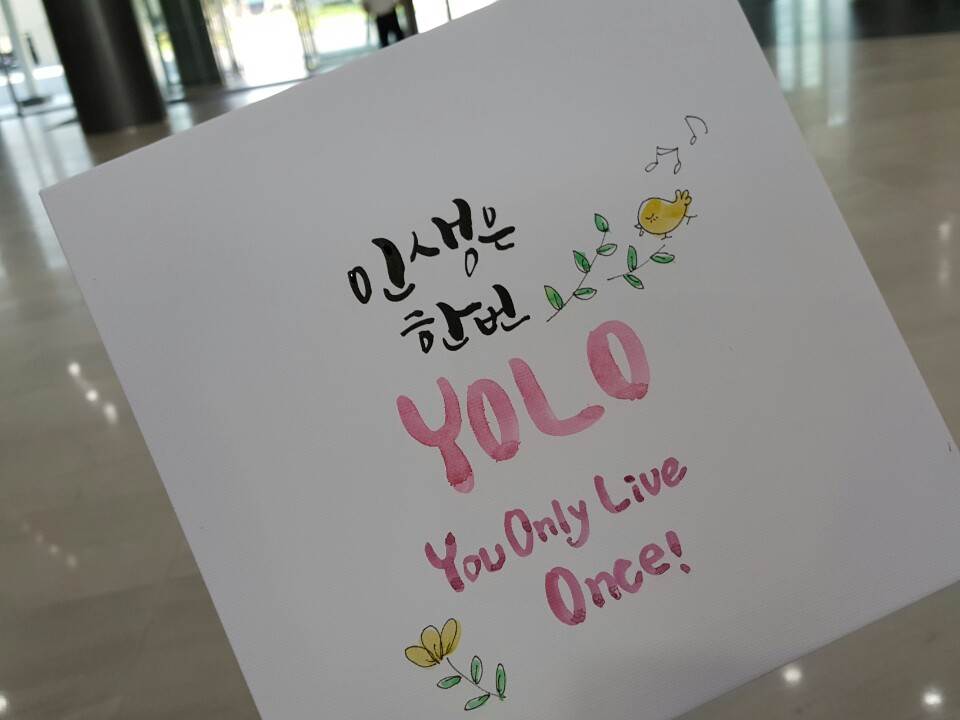 인생은
한번
YOLO
You Only Live
Once!